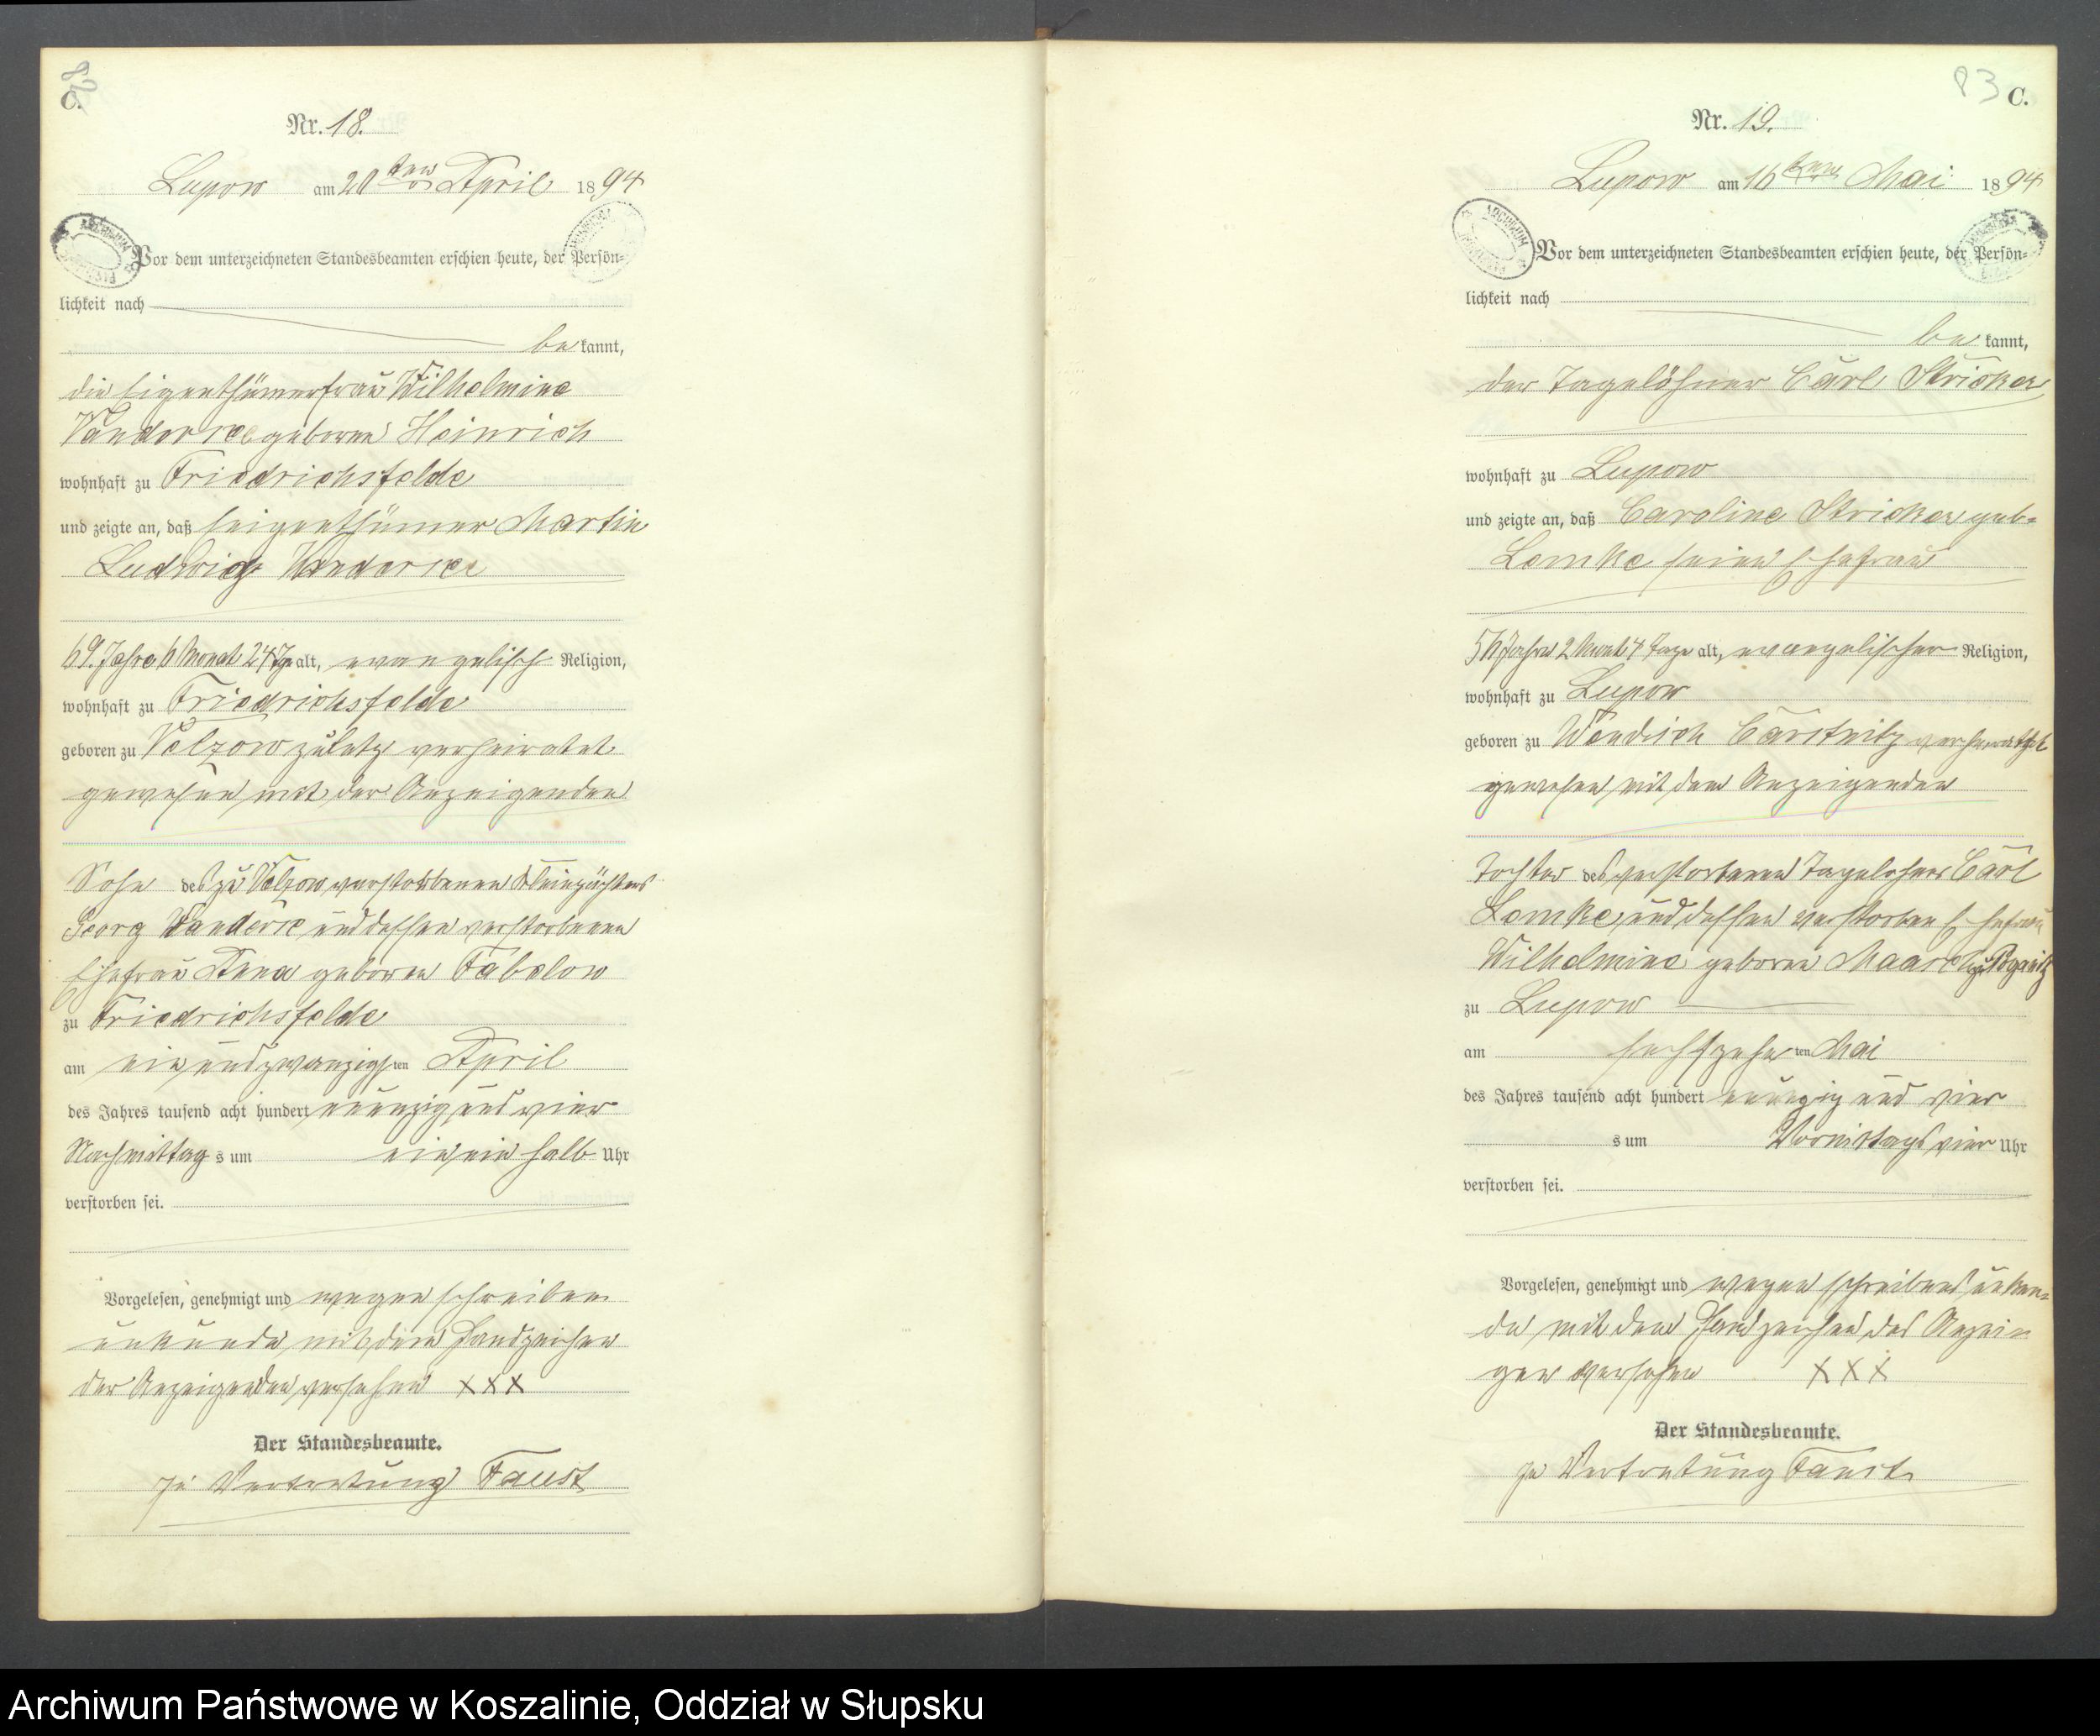 82
C.
Nr. 18.
Lupow am 20ten April 1894
Vor dem unterzeichneten Standesbeamten erschien heute, der Persön=
lichkeit nach
bekannt,
die Eigenthümerfrau Wilhelmine
geborene Heinrich
wohnhaft zu Friedrichsfelde
und zeigte an, daß Eigenthümer Martin
Ludwig
69 Jahre 6 Monat 24 Tge alt, evangelisch Religion,
wohnhaft zu Friedrichsfelde
geboren zu Velzow zuletz verheiratet
gewesen mit der Anzeigenden
Sohn des zu Velzow verstorbenen
Georg und dessen verstorbenen
Ehefrau Anna geboren Fabelow
zu Friedrichsfelde
am einundzwanzigsten April
des Jahres tausend acht hundert neunzig und vier
Nachmittags um ein ein halb Uhr
verstorben sei.
Vorgelesen, genehmigt und wegen schreiben
unkunde mit dem Handzeichen
der Anzeigenden versehen XXX
Der Standesbeamte.
In Vertretung Faust
83 C.
Nr. 19.
Lupow am 16ten Mai 1894
Vor dem unterzeichneten Standesbeamten erschien heute, der Persön=
lichkeit nach
bekannt,
der Tagelöhner Carl Stricker
wohnhaft zu Lupow
und zeigte an, daß Caroline Stricker geb=
Lemke seine Ehefrau
Jahre 2 Monat 4 Tage alt, evangelischer Religion,
wohnhaft zu Lupow
geboren zu Wendisch Carstnitz verheirathet
gewesen mit dem Anzeigenden
Tochter des verstorbenen Tagelohners Carl
Lemke und dessen verstorben Ehefrau
Wilhelmine geboren Maasch zu
zu Lupow
am sechszehnten Mai
des Jahres tausend acht hundert neunzig und vier
s um Vormittags vier Uhr
verstorben sei.
Vorgelesen, genehmigt und wegen schreibens unkun=
de mit dem Handzeichen des Anzei=
gen versehen XXX
Der Standesbeamte.
In Vertretung Faust
Archiwum Państwowe w Koszalinie, Oddział w Słupsku